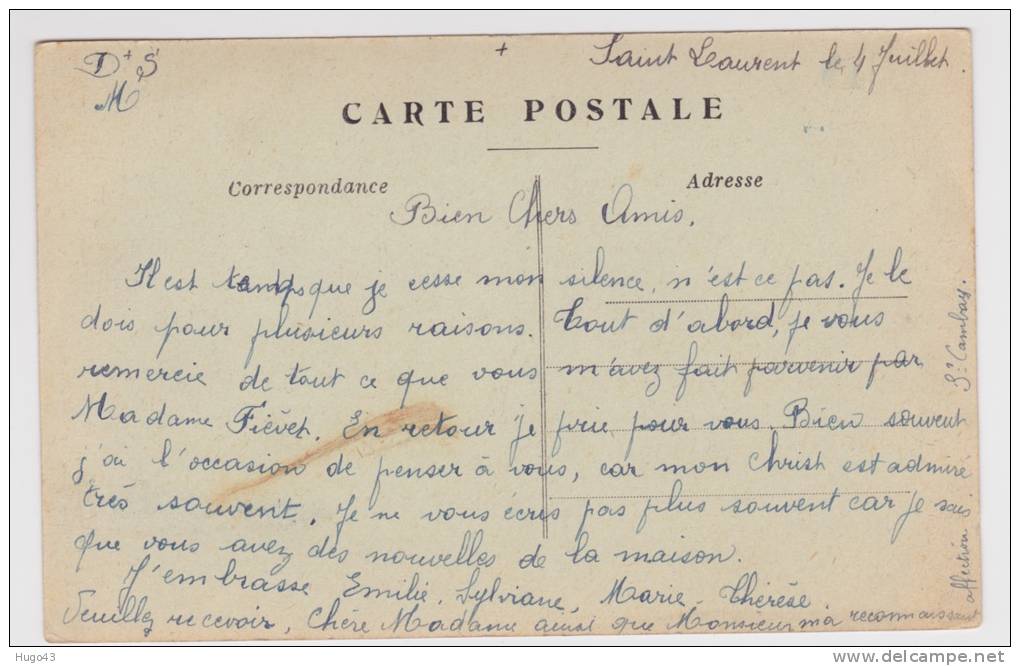 D + S
M
+
Saint Laurent le 4 Juillet.
CARTE POSTALE
Correspondance
Adresse
Bien Chers Amis,
Il est temps que je cesse mon silence, n'est ce pas. Je le
dois pour plusieurs raisons. Tout d'abord, je vous
remercie de tout ce que vous m'avez fait parvenir par
Madame Fiévet. En retour je prie pour vous. Bien souvent
j'ai l'occasion de penser à vous, car mon Christ est admiré
très souvent. Je ne vous écris pas plus souvent car je sais
que vous avez des nouvelles de la maison.
J'embrasse Emilie, Sylviane, Marie-Thérèse.
Veuillez recevoir, Chère Madame ainsi que Monsieur ma reconnaissante
affection
Sr Cambray.
Hugo43
delcampe.net